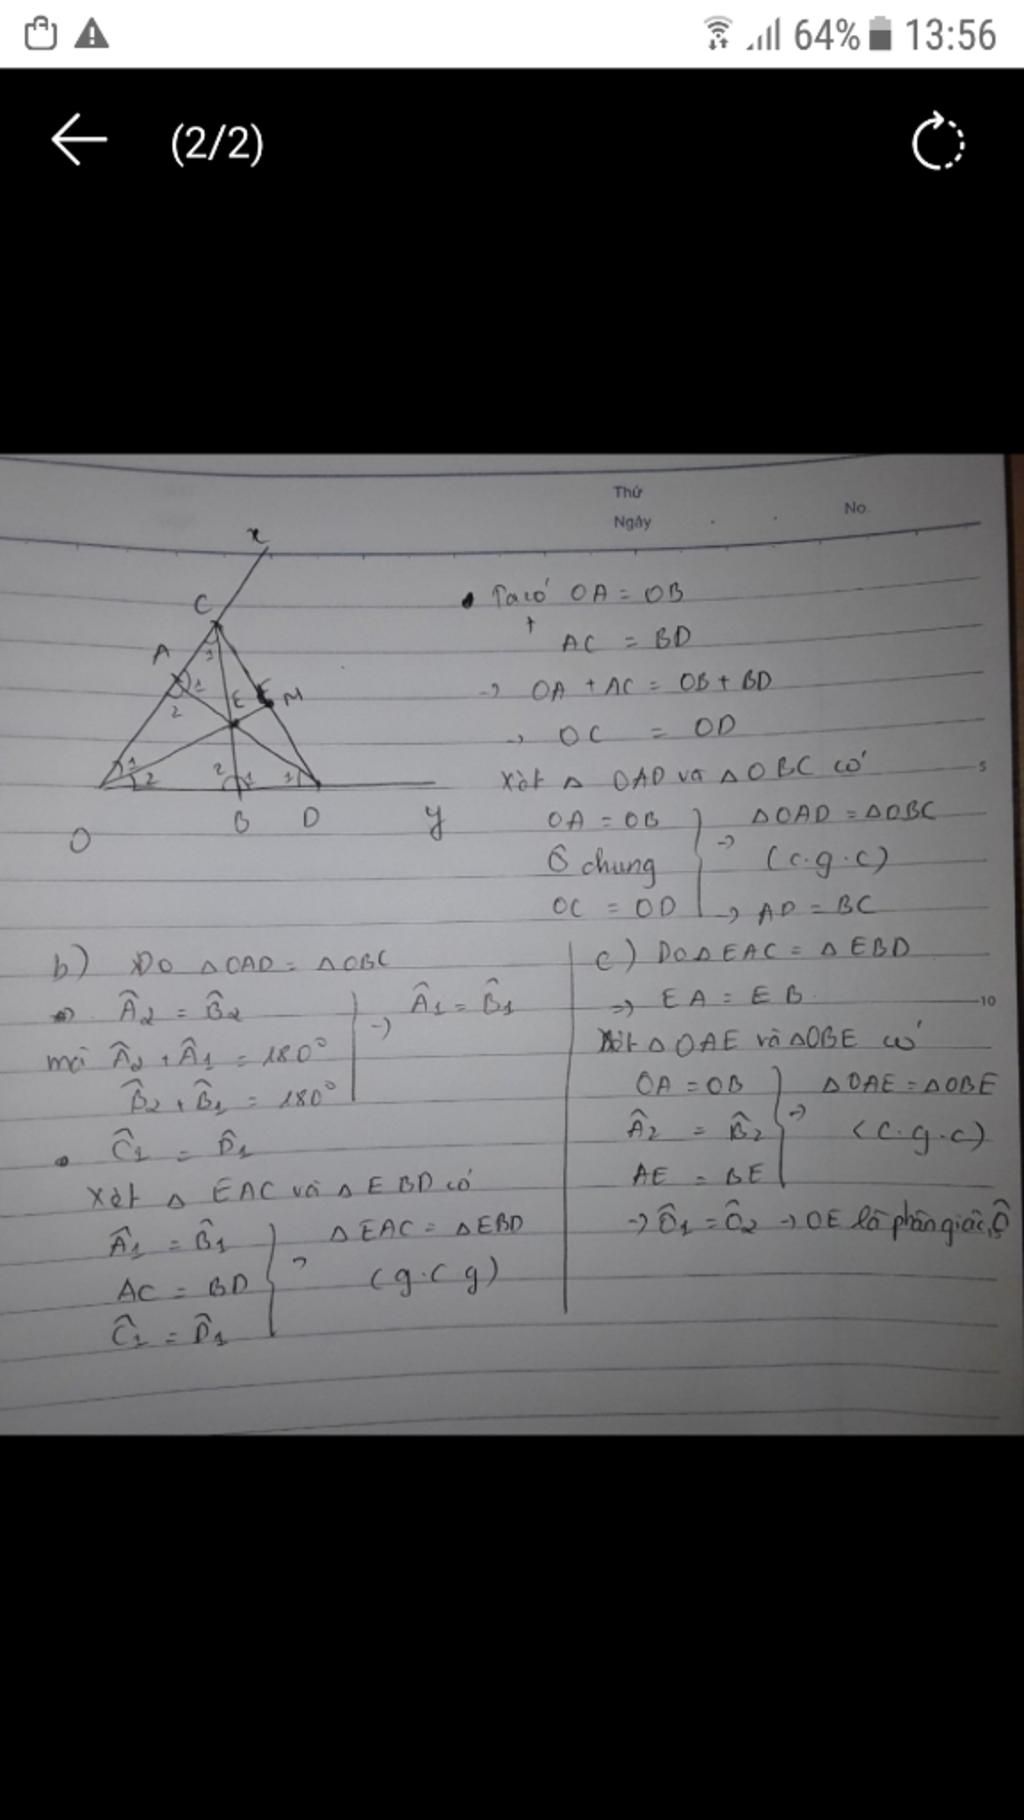 64% 13:56
(2/2)
Thứ
Ngày
No.
x
C
A
1
1
2
E
M
1
2
2
1
1
O
B
D
y
Ta có OA = OB
+
AC = BD
→ OA + AC = OB + BD
→ OC = OD
Xét Δ OAD và Δ OBC có
5
OA = OB
Ô chung
OC = OD
→ ΔOAD = ΔOBC
(c.g.c)
→ AD = BC
b) Do ΔOAD = ΔOBC
⇒ Â2 = B̂2
mà Â2 + Â1 = 180°
B̂2 + B̂1 = 180°
→ Â1 = B̂1
Ĉ1 = D̂1
Xét Δ EAC và Δ EBD có
Â1 = B̂1
AC = BD
Ĉ1 = D̂1
ΔEAC = ΔEBD
(g.c g)
c) Do Δ EAC = Δ EBD
⇒ EA = EB
10
Xét Δ OAE và ΔOBE có
OA = OB
Â2 = B̂2
AE = BE
⇒ ΔOAE = ΔOBE
(c.g.c)
→ Ô1 = Ô2 → OE là phân giác Ô